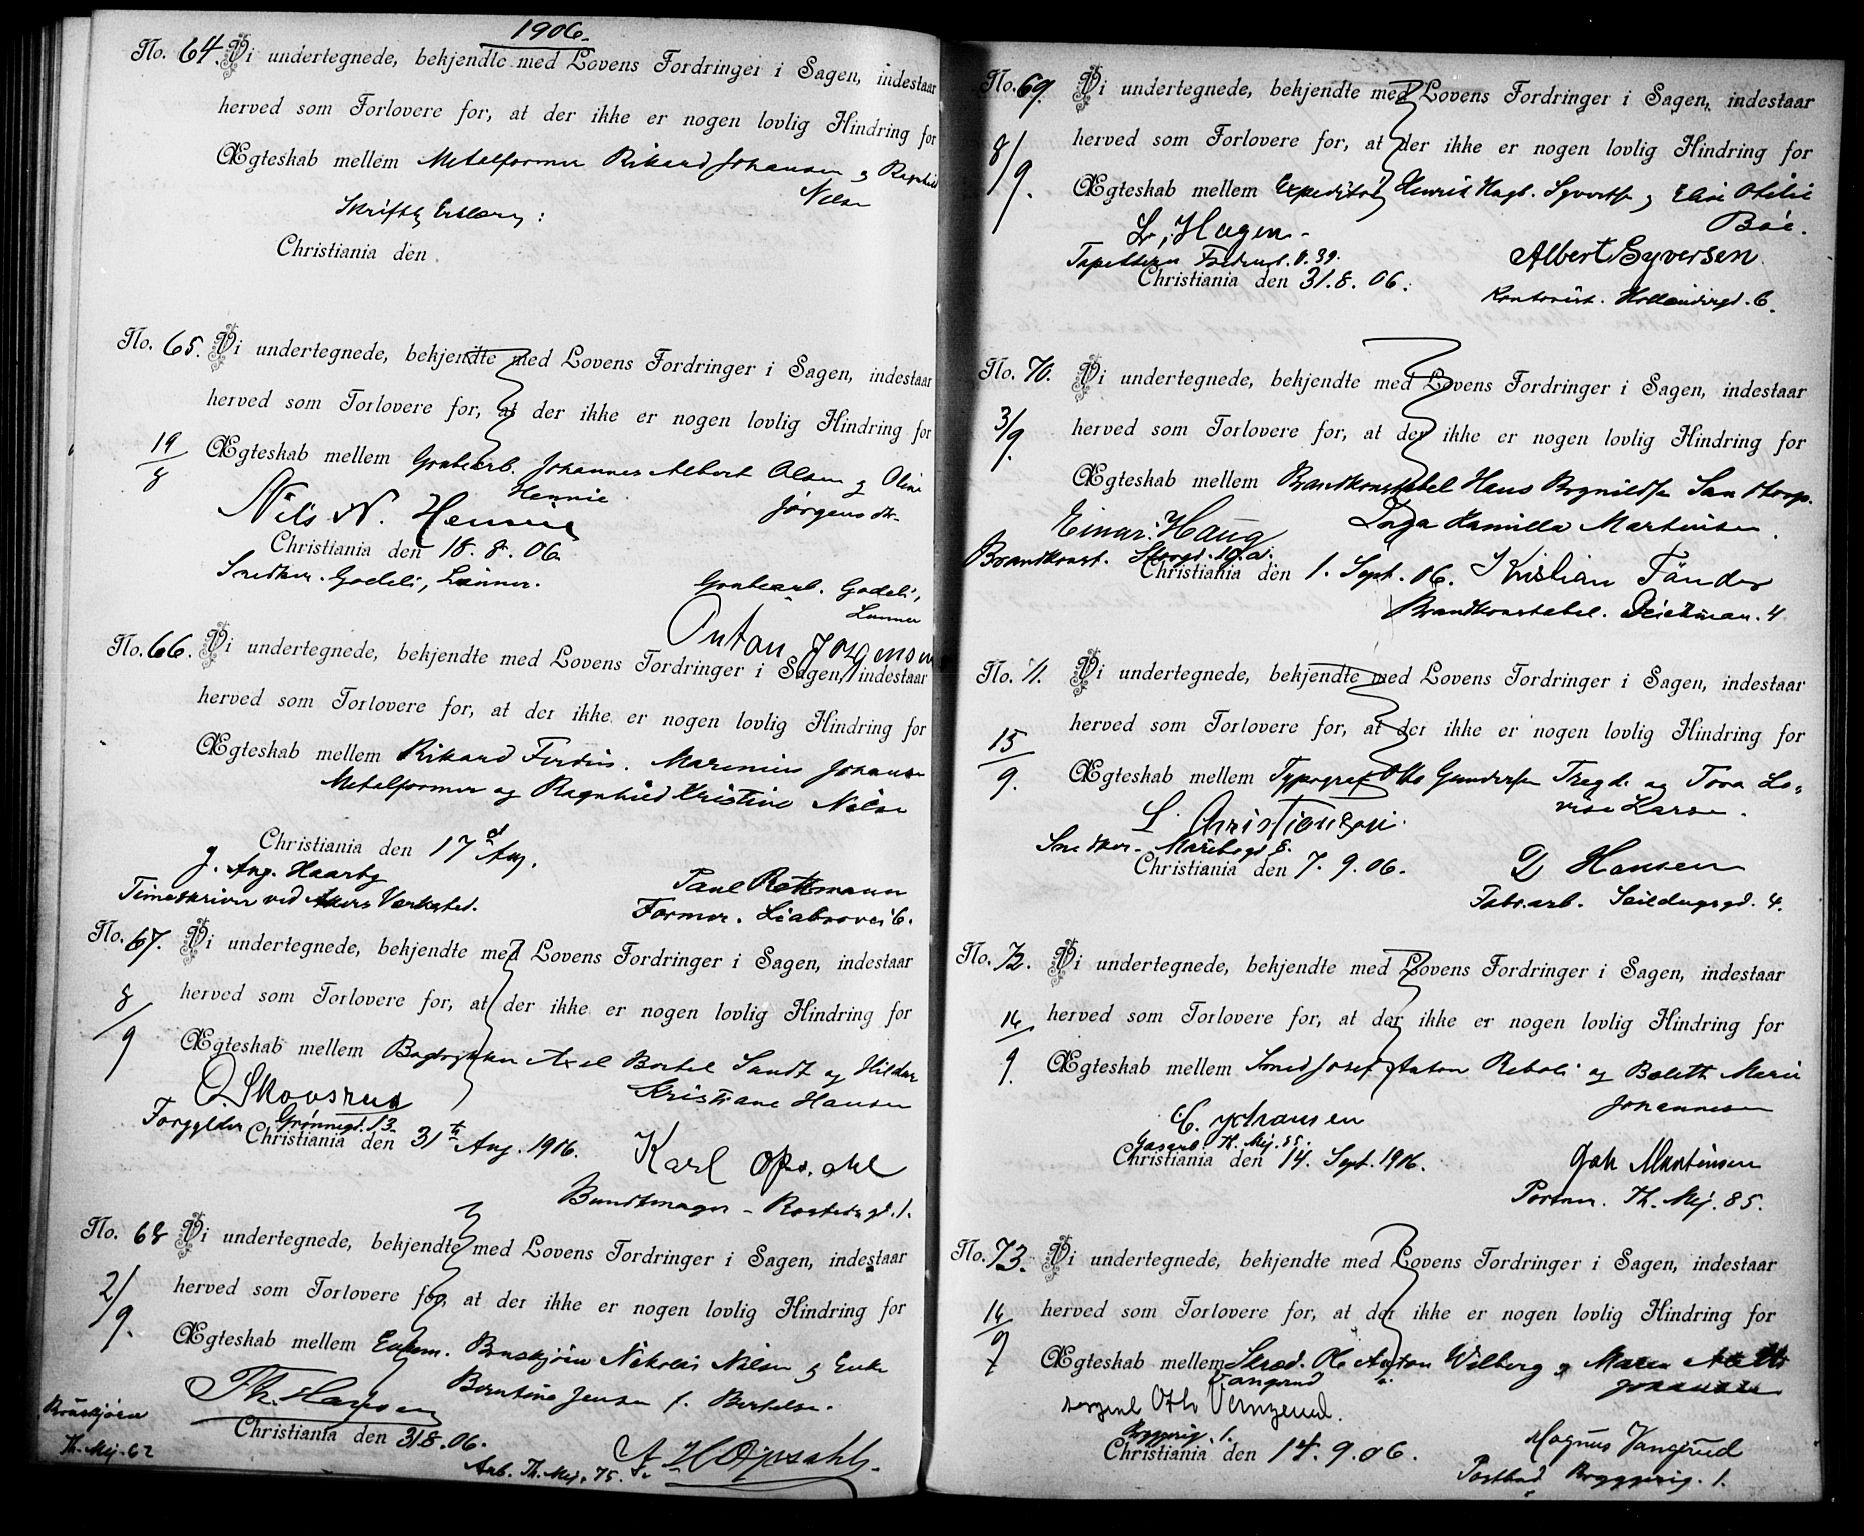 1906.
No. 64. Vi undertegnede, bekjendte med Lovens Fordringer i Sagen, indestaar
herved som Forlovere for, at der ikke er nogen lovlig Hindring for
Ægteskab mellem Metalformer Rikard Johansen og Ragnhild
Nilsen
Skriftlig Erklæring:
Christiania den
No. 65. Vi undertegnede, bekjendte med Lovens Fordringer i Sagen, indestaar
herved som Forlovere for, at der ikke er nogen lovlig Hindring for
19/8
Ægteskab mellem Grubearb. Johannes Albert Olsen og Oline
Hennie Jørgensdtr.
Nils N. Hennie
Christiania den 18. 8. 06.
Snedker. Godeli, Lunner.
Grubearb. Godeli,
Lunner
Anton Jørgensen
No. 66. Vi undertegnede, bekjendte med Lovens Fordringer i Sagen, indestaar
herved som Forlovere for, at der ikke er nogen lovlig Hindring for
Ægteskab mellem Rikard Ferdin. Marenius Johansen
Metalformer og Ragnhild Kristine Nilsen
Christiania den 17 Aug.
J. Aug. Haarby
Paul Rottmann
Timeskriver ved Akers Værksted.
Former. Liabrovei 6.
No. 67. Vi undertegnede, bekjendte med Lovens Fordringer i Sagen, indestaar
herved som Forlovere for, at der ikke er nogen lovlig Hindring for
8/9
Ægteskab mellem Bogtrykker Axel Bertel Sandt og Hildur
Kristiane Hansen
O Skovsrud
Forgylder Grønnegd. 13.
Christiania den 31te Aug. 1906.
Karl Opsahl
Bundtmager - Rostedsgd. 1.
No. 68 Vi undertegnede, bekjendte med Lovens Fordringer i Sagen, indestaar
herved som Forlovere for, at der ikke er nogen lovlig Hindring for
2/9.
Ægteskab mellem Enkem. Nikolai Nilsen og Enke
Berntine Jensen f. Bertelsen.
Th. Hansen
Th. Mej. 62
Christiania den 31 8. 06.
Arb. Th. Mej. 75.
No. 69. Vi undertegnede, bekjendte med Lovens Fordringer i Sagen, indestaar
herved som Forlovere for, at der ikke er nogen lovlig Hindring for
8/9.
Ægteskab mellem Expeditør Henrik Hagb. Syvertsen og Elise Otilie
Boe.
L. Hagen.
Albert Syversen
Christiania den 31. 8. 06.
Kontorist. Hollendergd. 6.
No. 70. Vi undertegnede, bekjendte med Lovens Fordringer i Sagen, indestaar
herved som Forlovere for, at der ikke er nogen lovlig Hindring for
3/9.
Ægteskab mellem Brandkonstabel Hans Brynildsen Sandtorp.
Inga Kamilla Martinsen.
Einar Haug
Brandkonst. Storgd. 10. a.
Christiania den 1. Sept. 06. Kristian Tander
Brandkonstabel. Deichman. 4
No. 71. Vi undertegnede, bekjendte med Lovens Fordringer i Sagen, indestaar
herved som Forlovere for, at der ikke er nogen lovlig Hindring for
15/9.
Ægteskab mellem Typograf Otto Gundersen Tregde og Tora Lo-
vise Larsen.
L. Christiansen.
Snedker. Maribogd 8.
Christiania den 7. 9. 06.
D Hansen
Fabr.arb. Seildugsgd. 4.
No. 72. Vi undertegnede, bekjendte med Lovens Fordringer i Sagen, indestaar
herved som Forlovere for, at der ikke er nogen lovlig Hindring for
16/9.
Ægteskab mellem Smed Josef Anton Reboli og Bolette Marie
Johannesen
C. Johansen
Gasarb. Th. Mej. 85.
Christiania den 14. Sept. 1906.
Joh Martinsen
Portner. Th. Mej. 85.
No. 73. Vi undertegnede, bekjendte med Lovens Fordringer i Sagen, indestaar
herved som Forlovere for, at der ikke er nogen lovlig Hindring for
16/9
Ægteskab mellem Skræd. Ole Anton Wilberg og Maren
Vangerud Johansen
Otto Vangerud.
Bryggerig. 1.
Christiania den 14. 9. 06.
Magnus Vangerud
Postbud Bryggerig. 1.